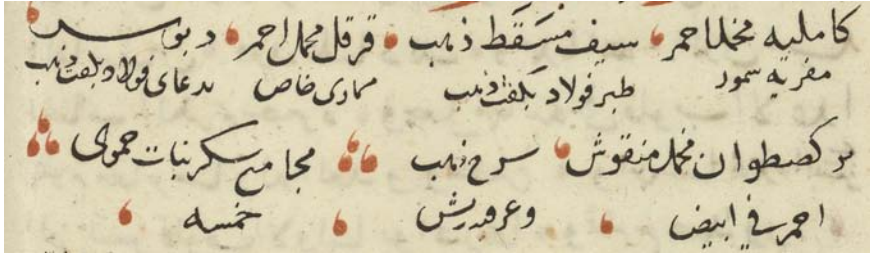 كاملية مخمل احمر سيف مسقط ذهب قرقل مخمل احمر دبوس
مفرية سمور طبر فولاد بكفت ذهب خاص فولاد بكفت ذهب
بركصطوان مخمل منقوش سرج ذهب مجامع سكر نبات حموى
احمر في ابيض وعرقديش خمسه